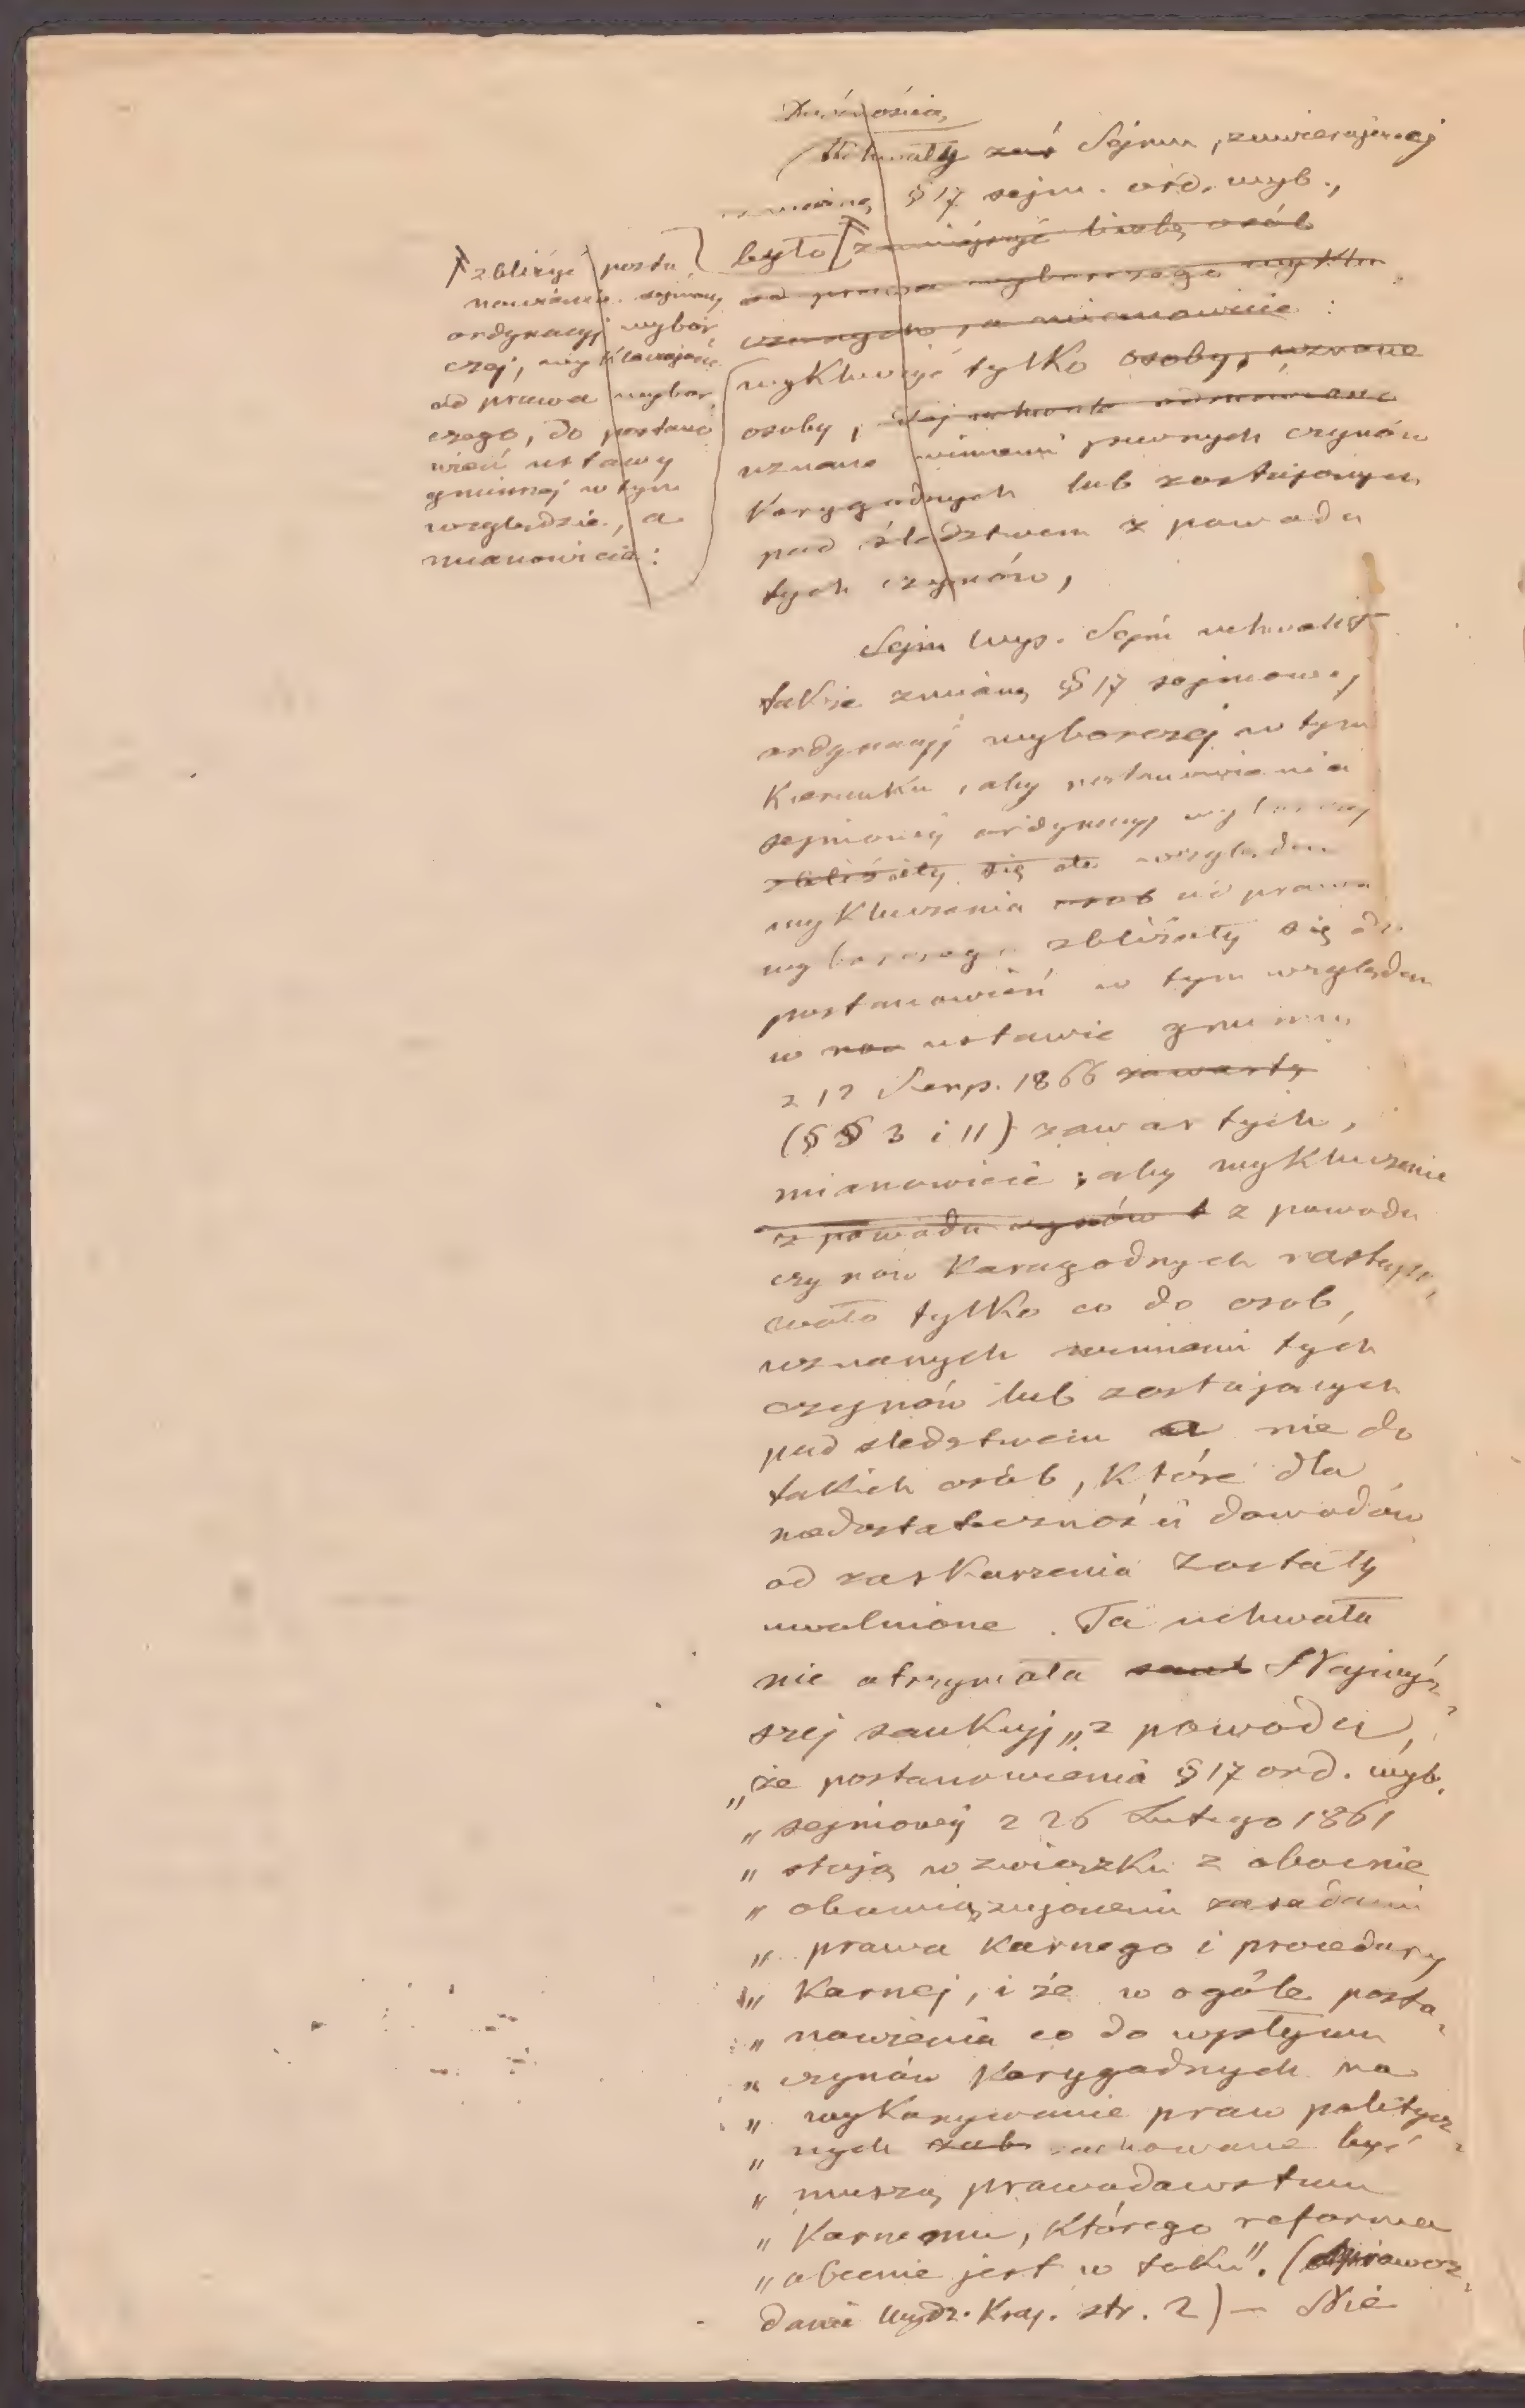 Uchwały zaś Sejmu, zawierającej
zmianę § 17 sejm. ord. wyb.,
było zmniejszyć liczbę osób
od prawa wyborczego wyklu
czonych, a mianowicie :
zbliżyć posta
nowienia sejmowej
ordynacyj wybor
czej, wykluczające
od prawa wybor
czego, do postano
wień ustawy
gminnej w tym
względzie, a
mianowicie :
wykluczyć tylko osoby, uznane
osoby,
uznane winnemi pewnych czynów
karygodnych lub zostających
pod śledztwem z powodu
tych czynów,
Sejm Wys. Sejm uchwalił
także zmianę § 17 sejmowej
ordynacyj wyborczej w tym
kierunku, aby postanowienia
sejmowej ordynacyj wyborczej
zbliżały się do względem
wykluczenia osób od prawa
wyborczego zbliżały się do
postanowień w tym względzie
w ustawie gminnej
z 12 Sierp. 1866 zawarty
(§§ 3 i 11) zawartych,
mianowicie ; aby wykluczenie
z powodu czynów t z powodu
czynów karygodnych następo,
wało tylko co do osób,
uznanych winnemi tych
czynów lub zostających
pod śledztwem a nie do
takich osób, które dla
niedostateczności dowodów
od zaskarżenia zostały
uwolnione. Ta uchwała
nie otrzymała sank Najwyż,
szej sankcyj „z powodu,
„że postanowienia § 17 ord. wyb.
„ sejmowej z 26 Lutego 1861
„ stoją w związku z obecnie
„ obowiązującemi zasadami
„ prawa karnego i procedury
„ karnej, i że w ogóle posta,
„ nowienia co do wpływu
„ czynów karygodnych na
„ wykonywanie praw politycz,
„ nych zach zachowane być
„ muszą prawodawstwu
„ karnemu, którego reforma
„ obecnie jest w toku". (Sprawoz,
danie Wydz. Kraj. str. 2) — Nie